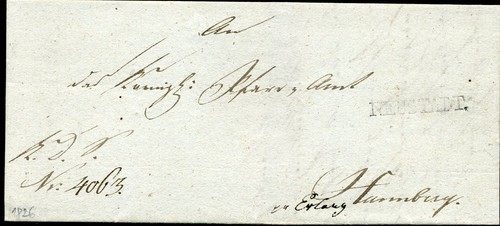 An
das Königl: Pfarr-Amt
NEUSTADT.
K. D. S.
Nr: 4063.
zu Erlang Hannberg.
1826